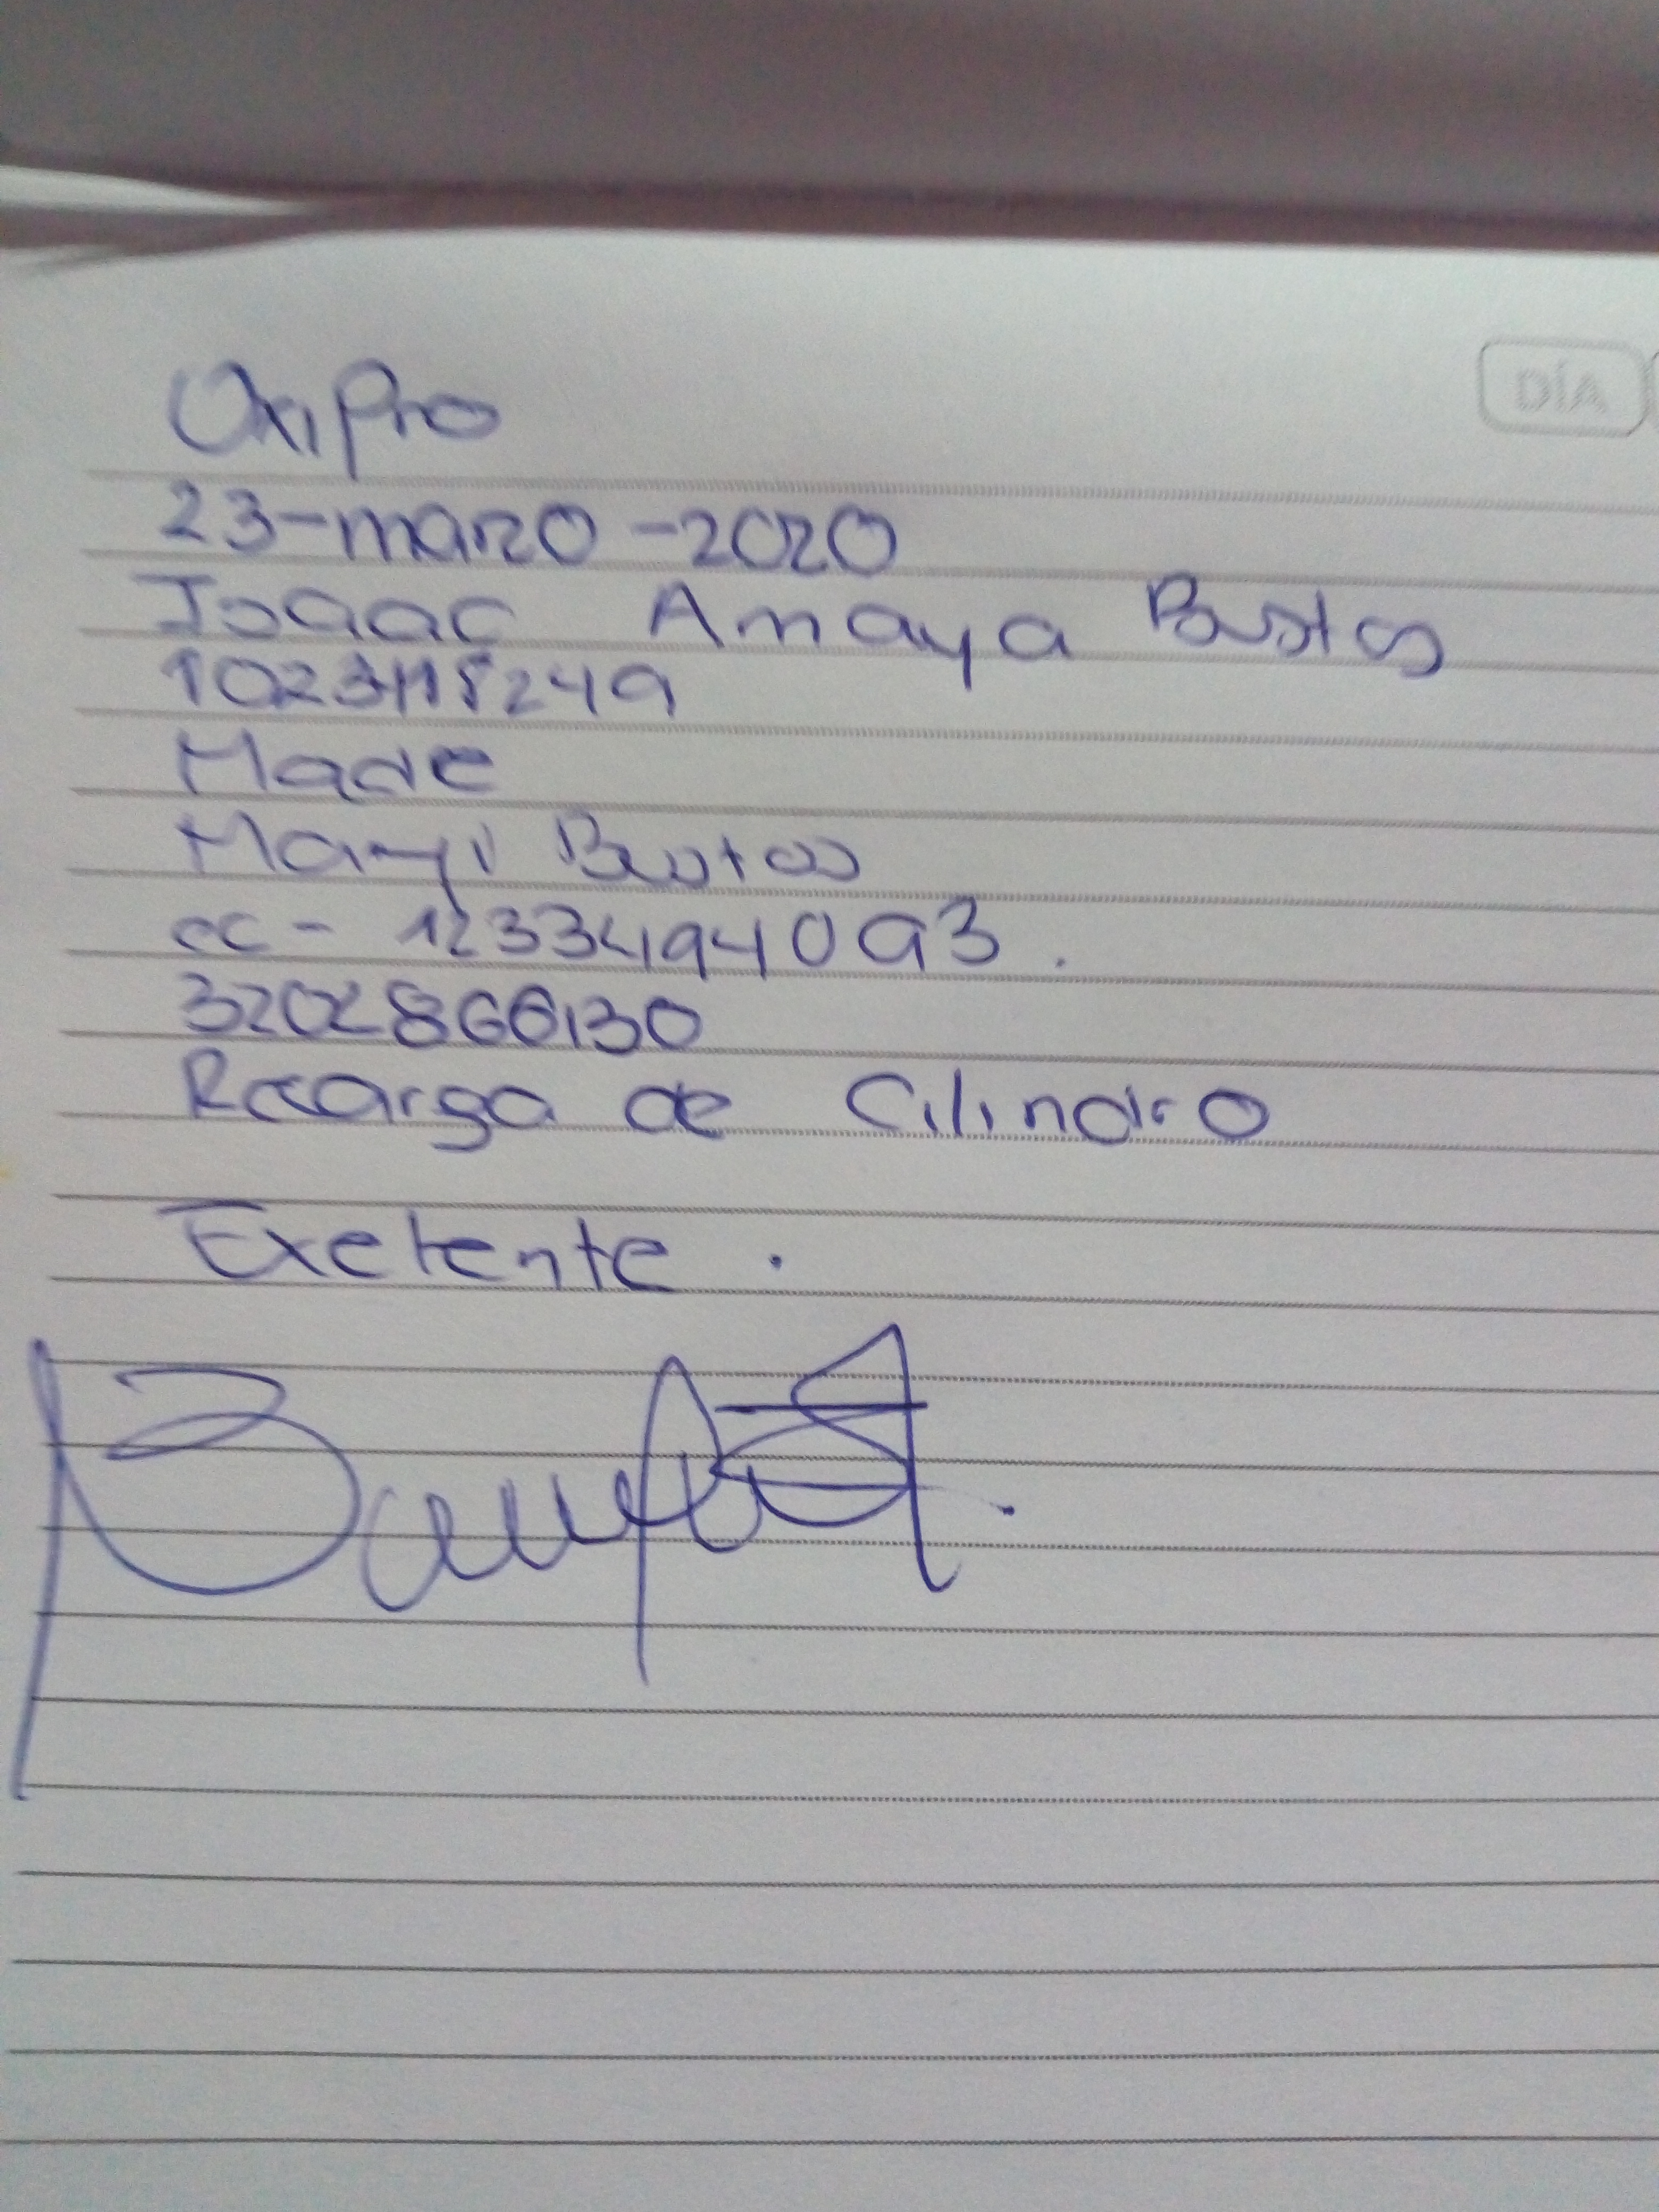 DÍA
OxiPro
23-marzo-2020
Isaac Amaya Bustos
Madre
Mayi Bustos
cc- 1233494093.
3202866130
Recarga de Cilindro
Exelente.